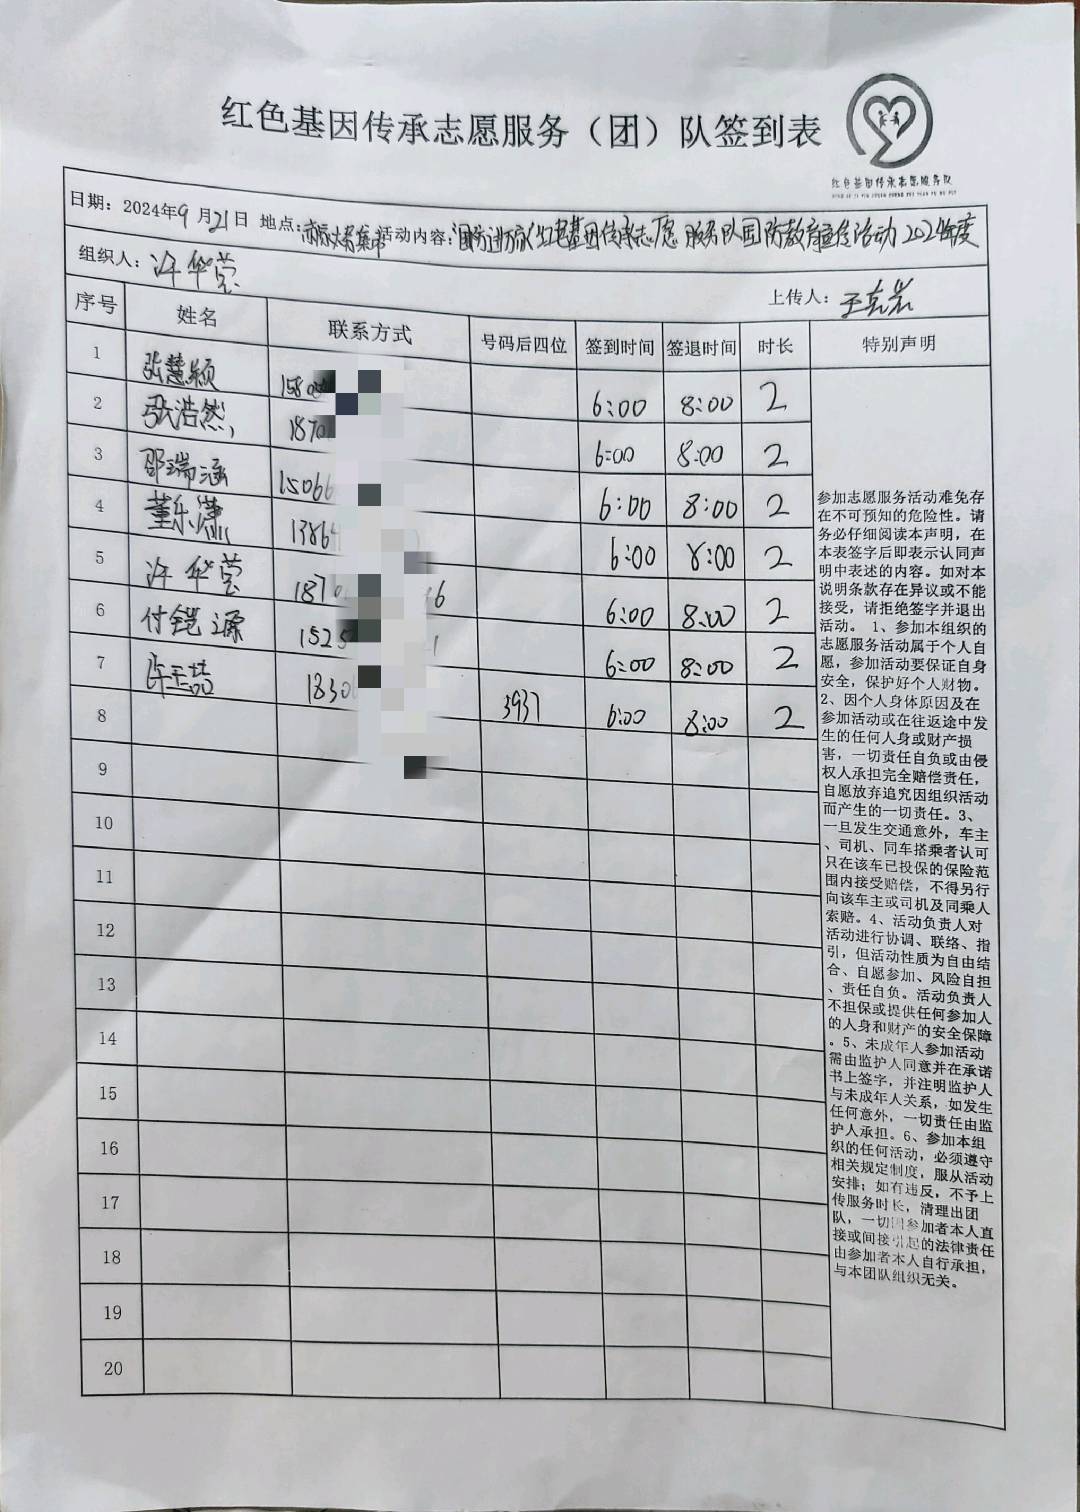 红色基因传承志愿服务（团）队签到表
红色基因传承志愿服务队
日期：2024年9月21日 地点： 活动内容：红色基因传承志愿服务队国防教育宣传活动2024年度
组织人：许华莹
上传人：王克岩
序号 姓名 联系方式 号码后四位 签到时间 签退时间 时长 特别声明
1 张慧颖 6:00 8:00 2
2 张浩然 1870 6:00 8:00 2
3 邵瑞涵 15066 6:00 8:00 2
4 董乐潇 1386 6:00 8:00 2
5 许华莹 187 6 6:00 8:00 2
6 付铠源 1525 1 6:00 8:00 2
7 1830 3937 6:00 8:00 2
8
9
10
11
12
13
14
15
16
17
18
19
20
参加志愿服务活动难免存
在不可预知的危险性。请
务必仔细阅读本声明，在
本表签字后即表示认同声
明中表述的内容。如对本
说明条款存在异议或不能
接受，请拒绝签字并退出
活动。 1、参加本组织的
志愿服务活动属于个人自
愿，参加活动要保证自身
安全，保护好个人财物。
2、因个人身体原因及在
参加活动或在往返途中发
生的任何人身或财产损
害，一切责任自负或由侵
权人承担完全赔偿责任，
自愿放弃追究因组织活动
而产生的一切责任。3、
一旦发生交通意外，车主
、司机、同车搭乘者认可
只在该车已投保的保险范
围内接受赔偿，不得另行
向该车主或司机及同乘人
索赔。4、活动负责人对
活动进行协调、联络、指
引，但活动性质为自由结
合、自愿参加、风险自担
、责任自负。活动负责人
不担保或提供任何参加人
的人身和财产的安全保障
。5、未成年人参加活动
需由监护人同意并在承诺
书上签字，并注明监护人
与未成年人关系，如发生
任何意外，一切责任由监
护人承担。6、参加本组
织的任何活动，必须遵守
相关规定制度，服从活动
安排；如有违反，不予上
传服务时长，清理出团
队，一切因参加者本人直
接或间接引起的法律责任
由参加者本人自行承担，
与本团队组织无关。